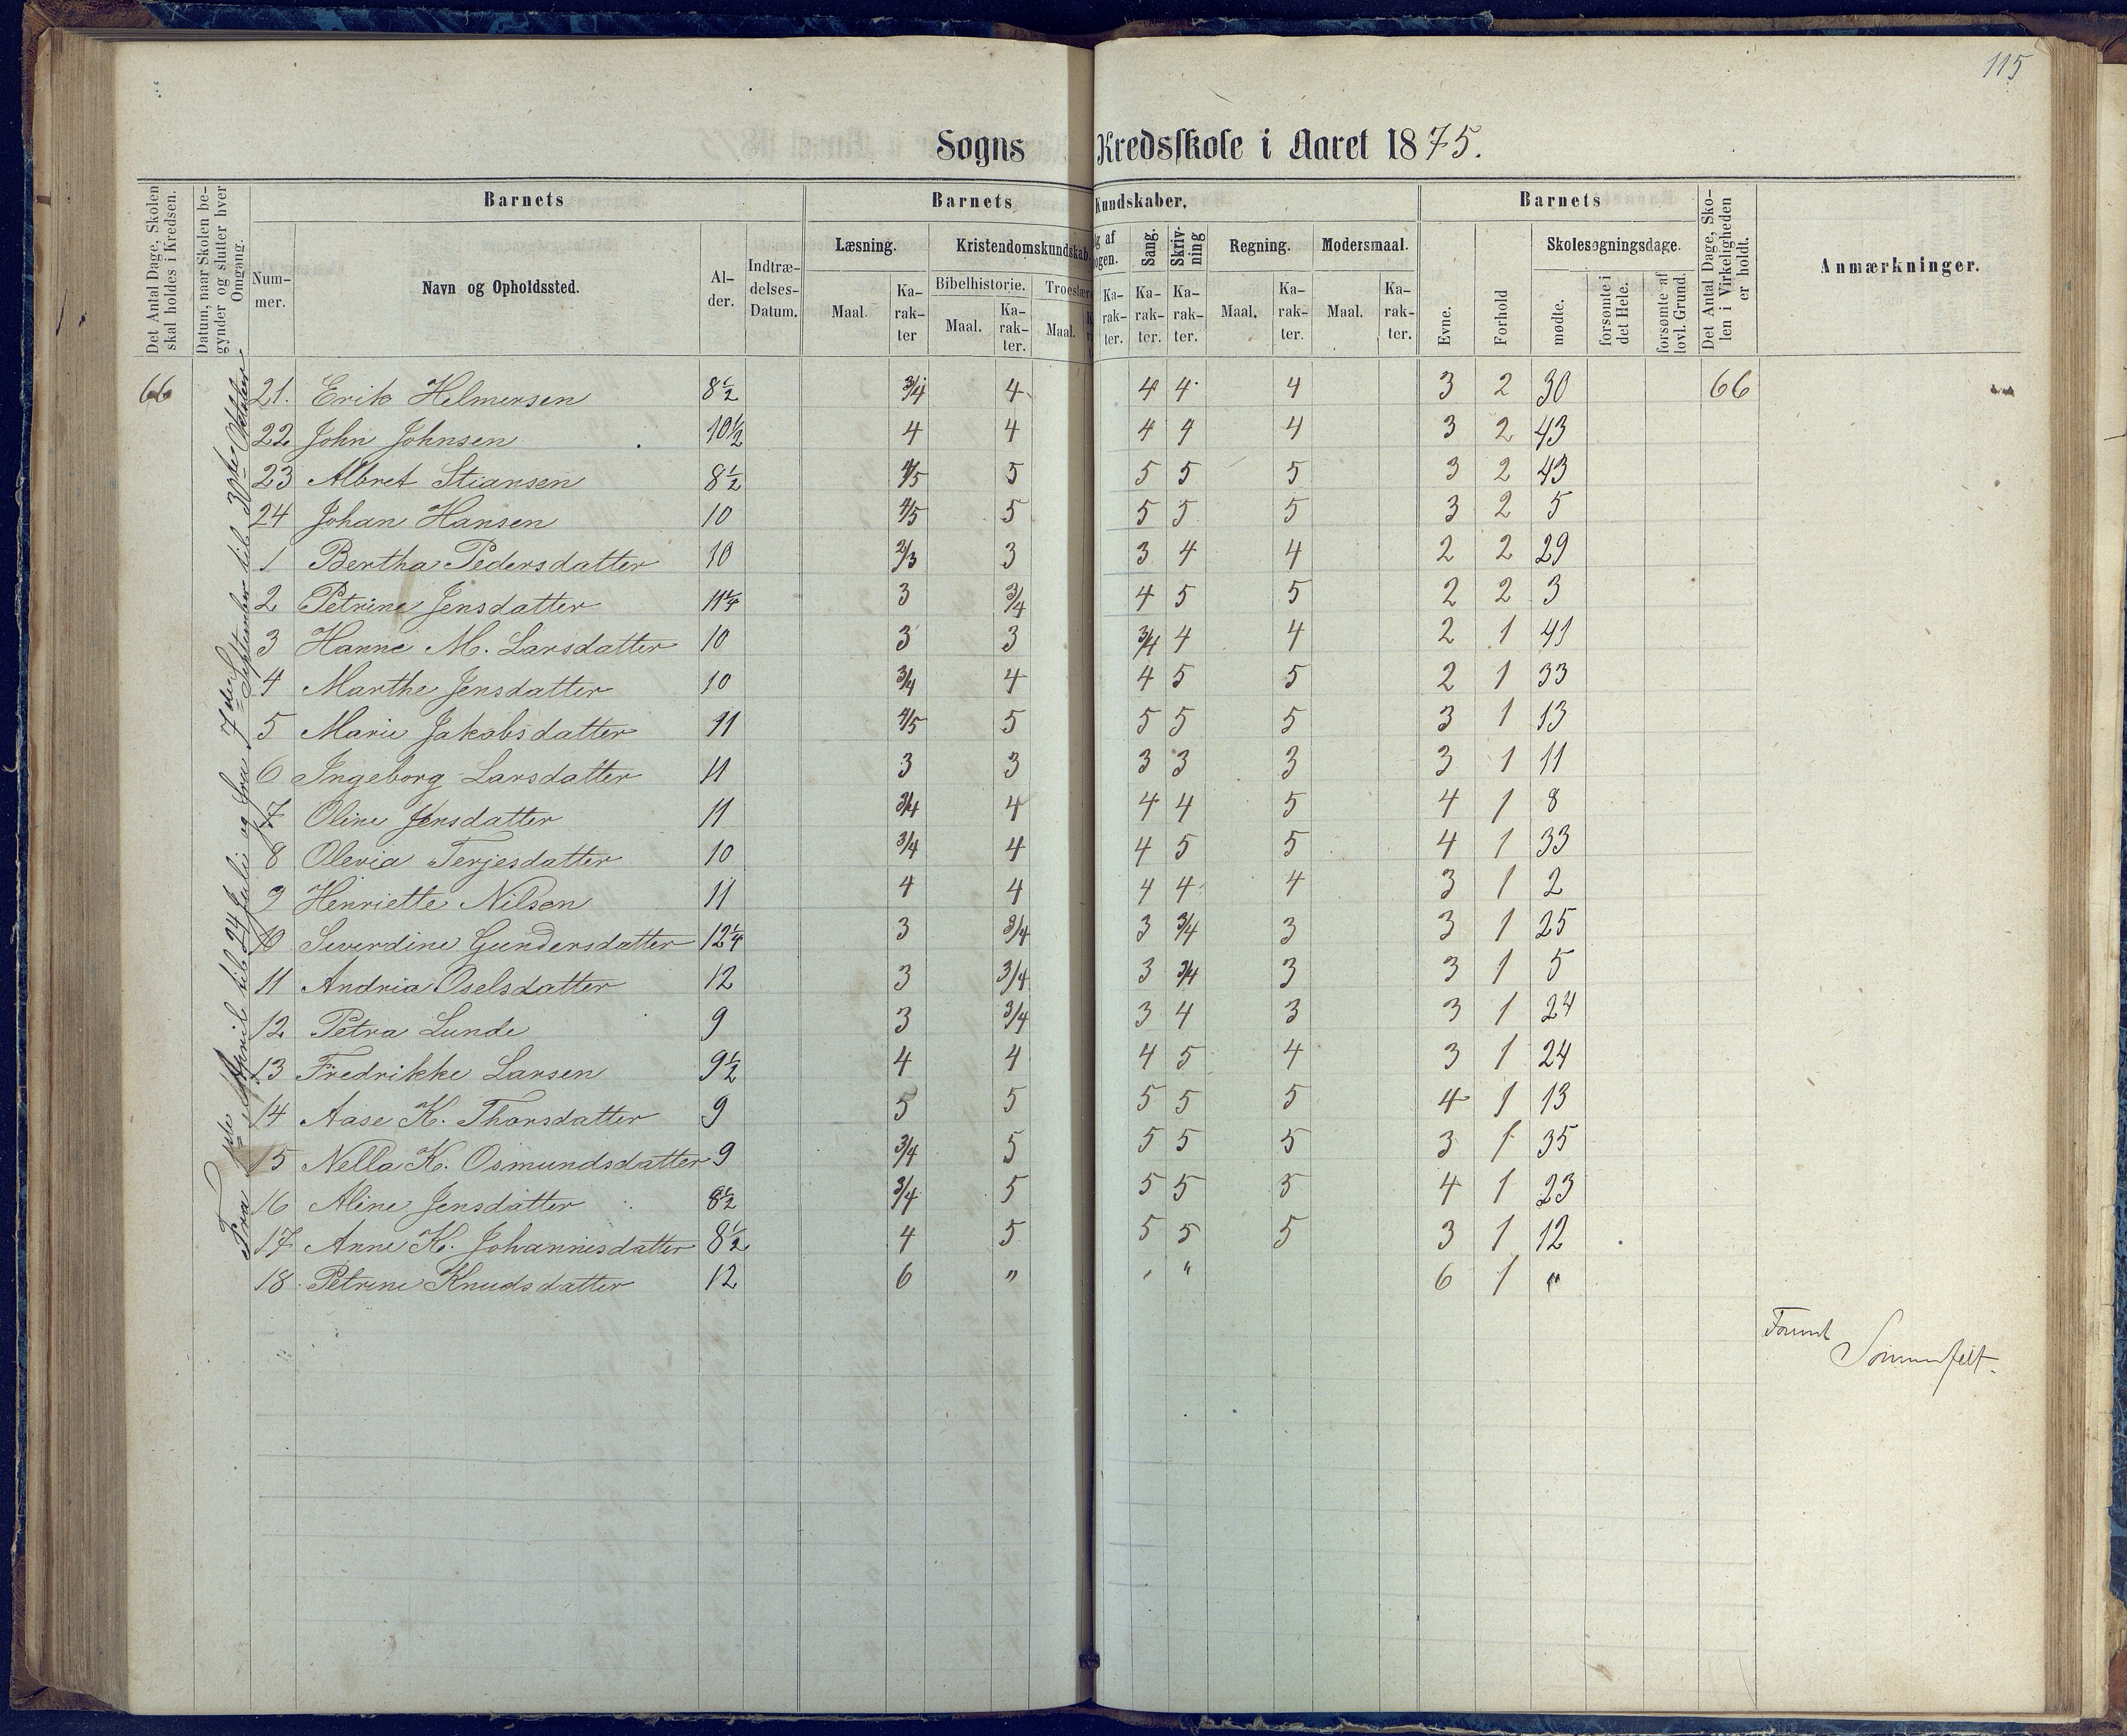 115
Sogns Kredsskole i Aaret 1875.
Det Antal Dage, Skolen skal holdes i Kredsen.
Datum, naar Skolen begynder og slutter hver Omgang.
Barnets
Nummer.
Navn og Opholdssted.
Alder.
Indtrædelses-Datum.
Barnets Kundskaber.
Læsning.
Maal.
Karakter
Kristendomskundskab.
Bibelhistorie.
Maal.
Karakter.
Troeslære
Maal.
g af
ogen.
Karakter.
Sang.
Karakter.
Skrivning
Karakter.
Regning.
Maal.
Karakter.
Modersmaal.
Maal.
Karakter.
Barnets
Evne.
Forhold
Skolesøgningsdage.
mødte.
forsømte i det Hele.
forsømte af lovl. Grund.
Det Antal Dage, Skolen i Virkeligheden er holdt.
Anmærkninger.
Fra 1ste April til 24 Juli og fra 7de September til 30te Oktober
66 21. Erik Helmersen 8½ 3/4 4 4 4 4 3 2 30 66
22 John Johnsen 10½ 4 4 4 4 4 3 2 43
23 Albret Stiansen 8½ 4/5 5 5 5 5 3 2 43
24 Johan Hansen 10 4/5 5 5 5 5 3 2 5
1 Bertha Pedersdatter 10 2/3 3 3 4 4 2 2 29
2 Petrine Jensdatter 11¼ 3 3/4 4 5 5 2 2 3
3 Hanne M. Larsdatter 10 3 3 3/4 4 4 2 1 41
4 Marthe Jensdatter 10 3/4 4 4 5 5 2 1 33
5 Marie Jakobsdatter 11 4/5 5 5 5 5 3 1 13
6 Ingeborg Larsdatter 11 3 3 3 3 3 3 1 11
7 Oline Jensdatter 11 3/4 4 4 4 5 4 1 8
8 Olevia Terjesdatter 10 3/4 4 4 5 5 4 1 33
9 Henriette Nilsen 11 4 4 4 4 4 3 1 2
10 Severdine Gundersdatter 12¼ 3 3/4 3 3/4 3 3 1 25
11 Andria Oselsdatter 12 3 3/4 3 3/4 3 3 1 5
12 Petra Lunde 9 3 3/4 3 4 3 3 1 24
13 Fredrikke Larsen 9½ 4 4 4 5 4 3 1 24
14 Aase K. Thorsdatter 9 5 5 5 5 5 4 1 13
15 Nella K. Osmundsdatter 9 3/4 5 5 5 5 3 1 35
16 Aline Jensdatter 8½ 3/4 5 5 5 5 4 1 23
17 Anne K. Johannesdatter 8½ 4 5 5 5 5 3 1 12
18 Petrine Knudsdatter 12 6 " " " 6 1 "
Sommerfelt.